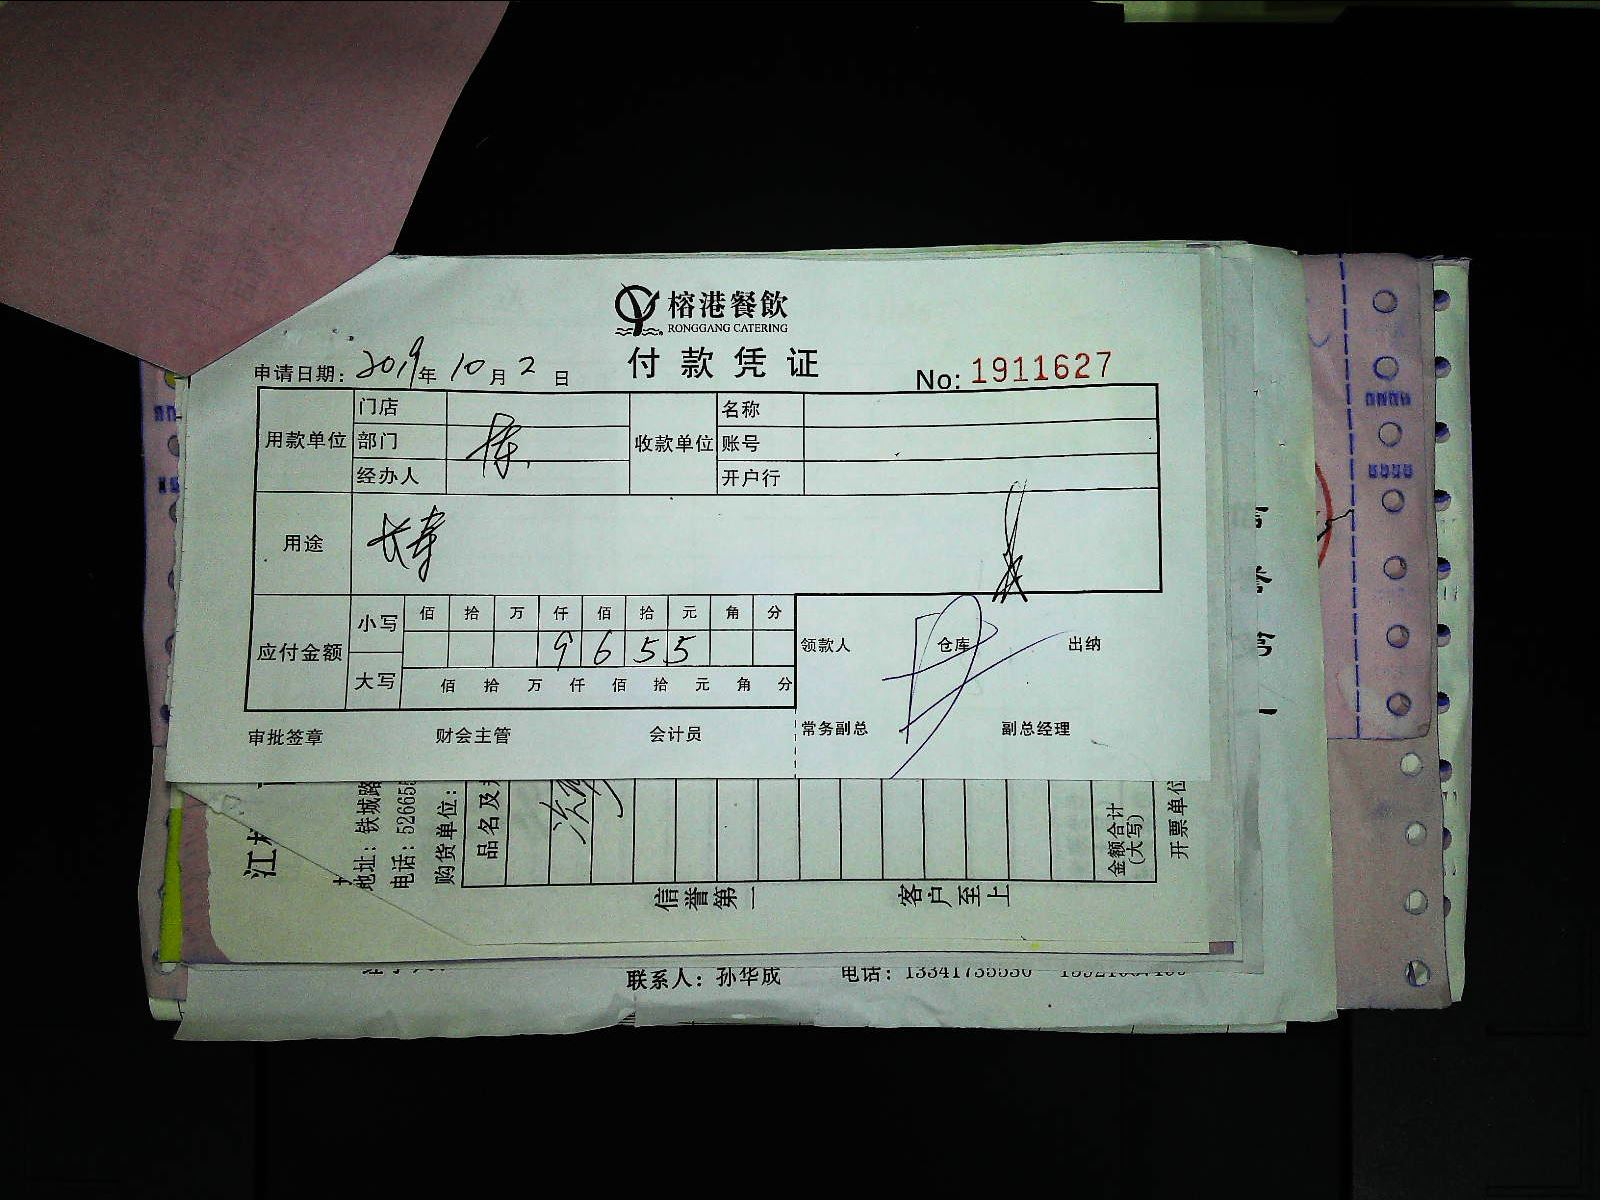 榕港餐飲
RONGGANG CATERING
付款凭证
申请日期：2019年10月2日
No: 1911627
用款单位 门店 收款单位 名称
部门 账号
经办人 开户行
用途 长寿
应付金额 小写 佰 拾 万 仟 佰 拾 元 角 分
9 6 5 5
大写 佰 拾 万 仟 佰 拾 元 角 分
领款人 仓库 出纳
审批签章 财会主管 会计员 常务副总 副总经理
江
地址：铁城路
电话：52665
购货单位：
品名及
金额合计
(大写)
开票单位
信誉第一 客户至上
联系人：孙华成 电话：